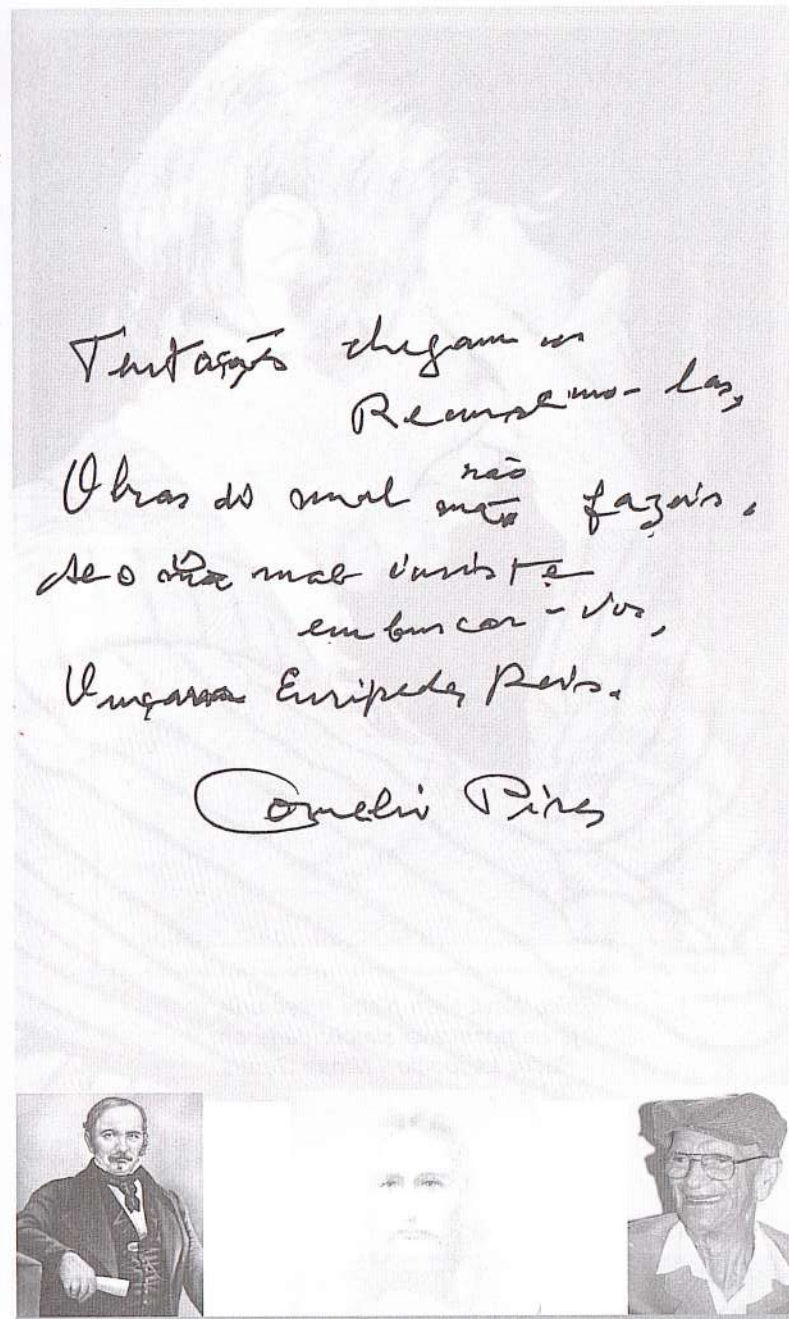 Tentações chegam
Recusemo-las,
Obras do mal não fazeis,
Se o mal insiste
em buscar-vos,
Eurípedes Reis.
Cornelio Pires